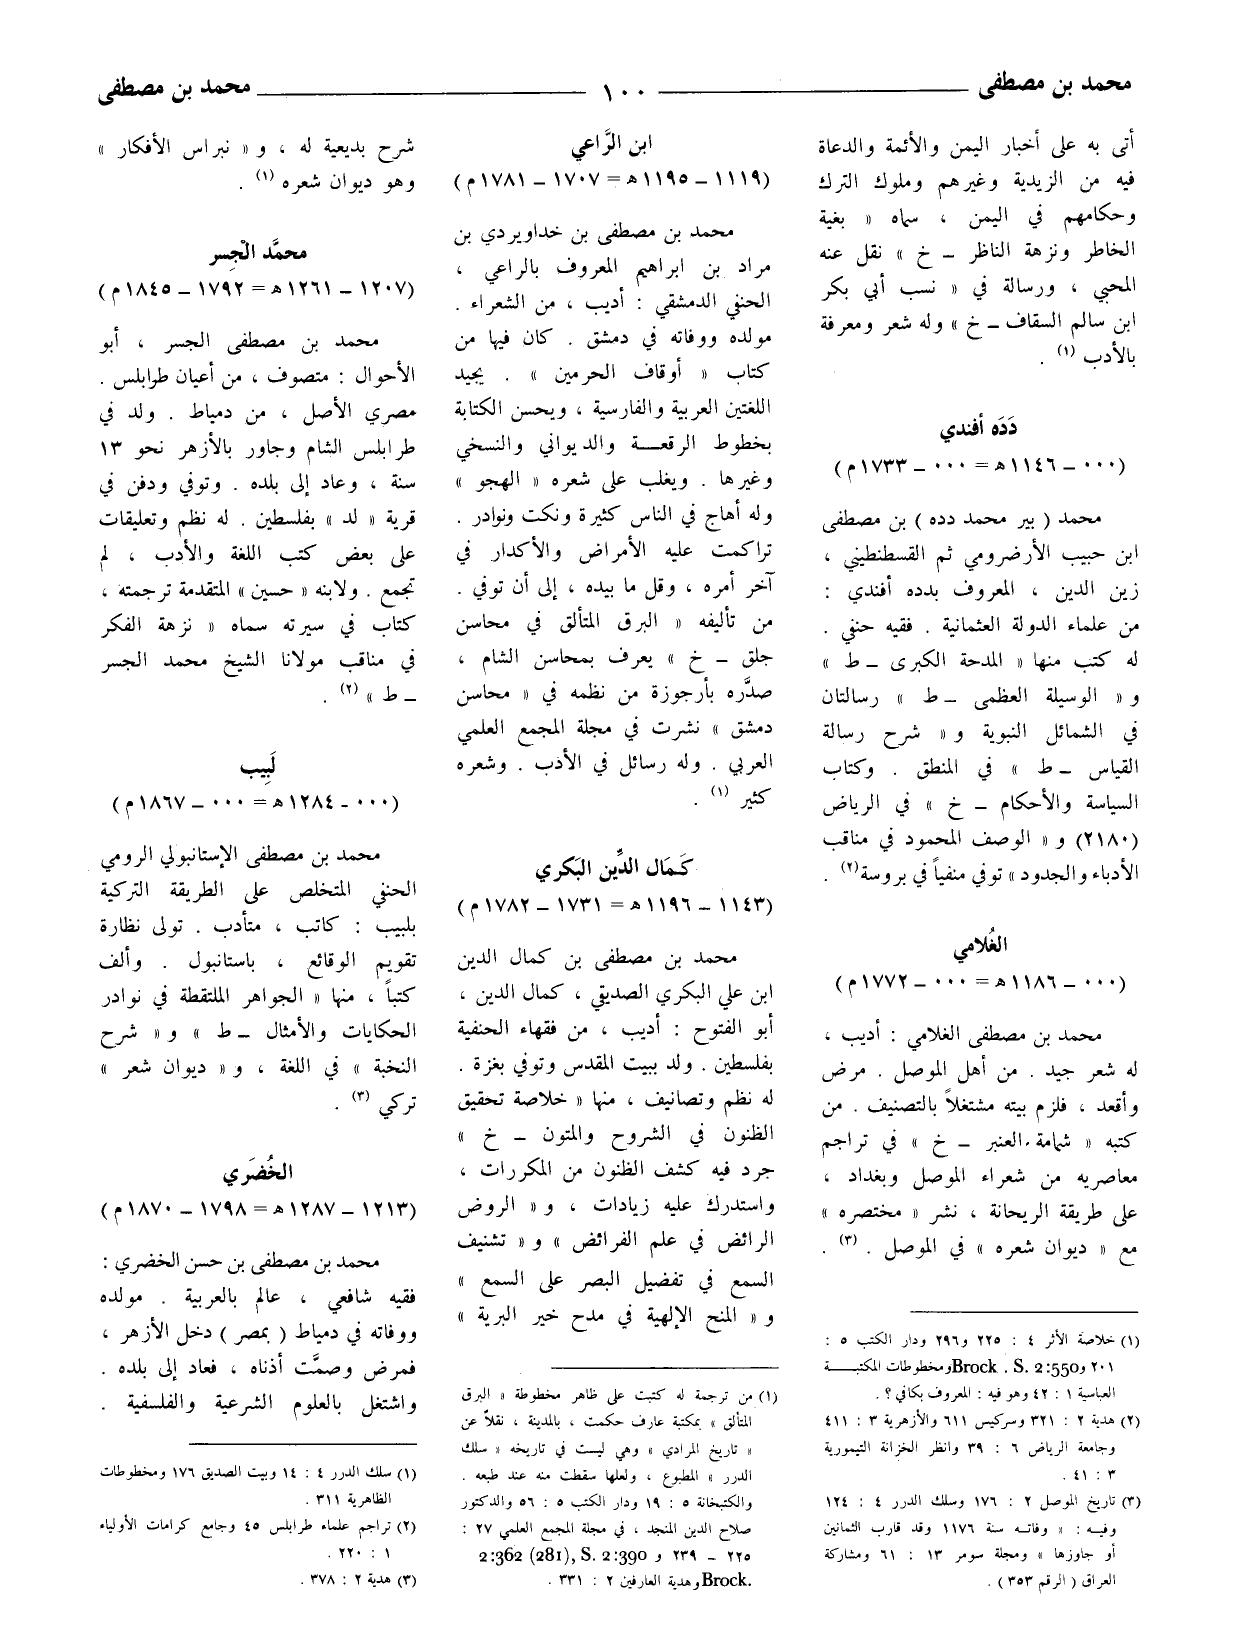 محمد بن مصطفى ١٠٠ محمد بن مصطفى
أتى به على أخبار اليمن والأئمة والدعاة
فيه من الزيدية وغيرهم وملوك الترك
وحكامهم في اليمن ، سماه « بغية
الخاطر ونزهة الناظر ــ خ » نقل عنه
المحبي ، ورسالة في « نسب أبي بكر
ابن سالم السقاف ــ خ » وله شعر ومعرفة
بالأدب (١) .
دَدَه أفندي
(٠٠٠ ــ ١١٤٦ ه = ٠٠٠ ــ ١٧٣٣ م)
محمد ( بير محمد دده ) بن مصطفى
ابن حبيب الأرضرومي ثم القسطنطيني ،
زين الدين ، المعروف بدده أفندي :
من علماء الدولة العثمانية . فقيه حنفي .
له كتب منها « المدحة الكبرى ــ ط »
و « الوسيلة العظمى ــ ط » رسالتان
في الشمائل النبوية و « شرح رسالة
القياس ــ ط » في المنطق . وكتاب
السياسة والأحكام ــ خ » في الرياض
(٢١٨٠) و « الوصف المحمود في مناقب
الأدباء والجدود » توفي منفياً في بروسة(٢) .
الغُلامي
(٠٠٠ ــ ١١٨٦ ه = ٠٠٠ ــ ١٧٧٢ م)
محمد بن مصطفى الغلامي : أديب ،
له شعر جيد . من أهل الموصل . مرض
وأقعد ، فلزم بيته مشتغلاً بالتصنيف . من
كتبه « شمامة العنبر ــ خ » في تراجم
معاصريه من شعراء الموصل وبغداد ،
على طريقة الريحانة ، نشر « مختصره »
مع « ديوان شعره » في الموصل . (٣) .
(١) خلاصة الأثر ٤ : ٢٢٥ و٢٩٦ ودار الكتب ٥ :
٢٠١ وBrock . S. 2:550 ومخطوطات المكتبـــة
العباسية ١ : ٤٢ وهو فيه : المعروف بكافي ؟ .
(٢) هدية ٢ : ٣٢١ وسركيس ٦١١ والأزهرية ٣ : ٤١١
وجامعة الرياض ٦ : ٣٩ وانظر الخزانة التيمورية
٣ : ٤١ .
(٣) تاريخ الموصل ٢ : ١٧٦ وسلك الدرر ٤ : ١٢٤
وفيه : « وفاته سنة ١١٧٦ وقد قارب الثمانين
أو جاوزها » ومجلة سومر ١٣ : ٦١ ومشاركة
العراق ( الرقم ٣٥٣ ) .
ابن الرَّاعي
(١١١٩ ــ ١١٩٥ ه = ١٧٠٧ ــ ١٧٨١ م)
محمد بن مصطفى بن خداويردي بن
مراد بن ابراهيم المعروف بالراعي ،
الحنفي الدمشقي : أديب ، من الشعراء .
مولده ووفاته في دمشق . كان فيها من
كتاب « أوقاف الحرمين » . يجيد
اللغتين العربية والفارسية ، ويحسن الكتابة
بخطوط الرقعـــة والديواني والنسخي
وغيرها . ويغلب على شعره « الهجو »
وله أهاج في الناس كثيرة ونكت ونوادر .
تراكمت عليه الأمراض والأكدار في
آخر أمره ، وقل ما بيده ، إلى أن توفي .
من تأليفه « البرق المتألق في محاسن
جلق ــ خ » يعرف بمحاسن الشام ،
صدَّره بأرجوزة من نظمه في « محاسن
دمشق » نشرت في مجلة المجمع العلمي
العربي . وله رسائل في الأدب . وشعره
كثير (١) .
كَمَال الدِّين البَكري
(١١٤٣ ــ ١١٩٦ ه = ١٧٣١ ــ ١٧٨٢ م)
محمد بن مصطفى بن كمال الدين
ابن علي البكري الصديقي ، كمال الدين ،
أبو الفتوح : أديب ، من فقهاء الحنفية
بفلسطين . ولد ببيت المقدس وتوفي بغزة .
له نظم وتصانيف ، منها « خلاصة تحقيق
الظنون في الشروح والمتون ــ خ »
جرد فيه كشف الظنون من المكررات ،
واستدرك عليه زيادات ، و « الروض
الرائض في علم الفرائض » و « تشنيف
السمع في تفضيل البصر على السمع »
و « المنح الإلهية في مدح خير البرية »
(١) من ترجمة له كتبت على ظاهر مخطوطة « البرق
المتألق » بمكتبة عارف حكمت ، بالمدينة ، نقلاً عن
« تاريخ المرادي » وهي ليست في تاريخه « سلك
الدرر » المطبوع ، ولعلها سقطت منه عند طبعه .
والكتبخانة ٥ : ١٩ ودار الكتب ٥ : ٥٦ والدكتور
صلاح الدين المنجد ، في مجلة المجمع العلمي ٢٧ :
٢٢٥ ــ ٢٣٩ و 2:362 (281), S. 2:390
Brock. وهدية العارفين ٢ : ٣٣١ .
شرح بديعية له ، و « نبراس الأفكار »
وهو ديوان شعره (١) .
محمَّد الجِسر
(١٢٠٧ ــ ١٢٦١ ه = ١٧٩٢ ــ ١٨٤٥ م)
محمد بن مصطفى الجسر ، أبو
الأحوال : متصوف ، من أعيان طرابلس .
مصري الأصل ، من دمياط . ولد في
طرابلس الشام وجاور بالأزهر نحو ١٣
سنة ، وعاد إلى بلده . وتوفي ودفن في
قرية « لد » بفلسطين . له نظم وتعليقات
على بعض كتب اللغة والأدب ، لم
تجمع . ولابنه « حسين » المتقدمة ترجمته ،
كتاب في سيرته سماه « نزهة الفكر
في مناقب مولانا الشيخ محمد الجسر
ــ ط » (٢) .
لَبِيب
(٠٠٠ ــ ١٢٨٤ ه = ٠٠٠ ــ ١٨٦٧ م)
محمد بن مصطفى الإستانبولي الرومي
الحنفي المتخلص على الطريقة التركية
بلبيب : كاتب ، متأدب . تولى نظارة
تقويم الوقائع ، باستانبول . وألف
كتباً ، منها « الجواهر الملتقطة في نوادر
الحكايات والأمثال ــ ط » و « شرح
النخبة » في اللغة ، و « ديوان شعر »
تركي (٣) .
الخُضَري
(١٢١٣ ــ ١٢٨٧ ه = ١٧٩٨ ــ ١٨٧٠ م)
محمد بن مصطفى بن حسن الخضري :
فقيه شافعي ، عالم بالعربية . مولده
ووفاته في دمياط ( بمصر ) دخل الأزهر ،
فمرض وصمَّت أذناه ، فعاد إلى بلده .
واشتغل بالعلوم الشرعية والفلسفية .
(١) سلك الدرر ٤ : ١٤ وبيت الصديق ١٧٦ ومخطوطات
الظاهرية ٣١١ .
(٢) تراجم علماء طرابلس ٤٥ وجامع كرامات الأولياء
١ : ٢٢٠ .
(٣) هدية ٢ : ٣٧٨ .